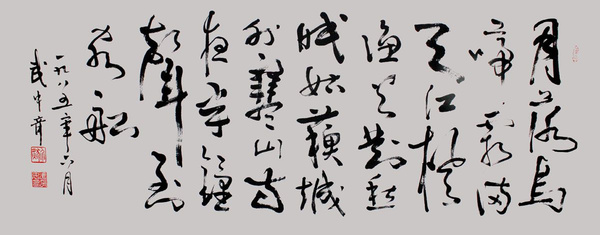 月落烏
啼霜滿
天江楓
漁火對愁
眠姑蘇城
外寒山寺
夜半鐘
聲到
客船
一九八五年六月
武中奇